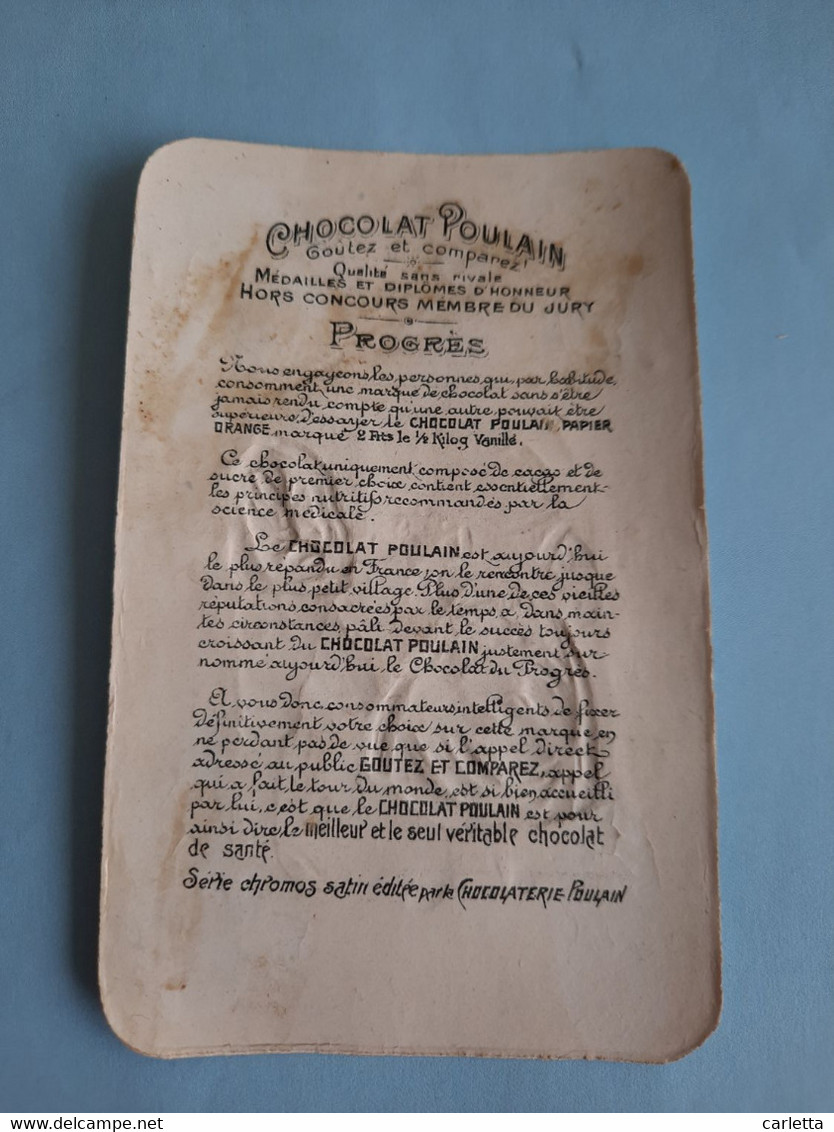 CHOCOLAT POULAIN
Goutez et comparez!
Qualité sans rivale
MÉDAILLES ET DIPLOMES D'HONNEUR
HORS CONCOURS MEMBRE DU JURY
PROGRÈS
Nous engageons les personnes qui, par habitude,
consomment une marque de chocolat sans s'être
jamais rendu compte qu'une autre pouvait être
supérieure, d'essayer le CHOCOLAT POULAIN, PAPIER
ORANGE, marqué 2 Frs le 1/2 Kilog Vanillé.
Ce chocolat uniquement composé de cacao et de
sucre de premier choix contient essentiellement
les principes nutritifs recommandés par la
science médicale.
Le CHOCOLAT POULAIN est aujourd'hui
le plus répandu en France, on le rencontre jusque
dans le plus petit village. Plus d'une de ces vieilles
réputations consacrées par le temps, a dans main-
tes circonstances, pâli devant le succès toujours
croissant du CHOCOLAT POULAIN justement sur-
nommé aujourd'hui le Chocolat du Progrès.
A vous donc consommateurs intelligents de fixer
définitivement votre choix sur cette marque, en
ne perdant pas de vue que si l'appel direct
adressé au public GOUTEZ ET COMPAREZ, appel
qui a fait le tour du monde, est si bien accueilli
par lui, c'est que le CHOCOLAT POULAIN est pour
ainsi dire, le meilleur et le seul véritable chocolat
de santé.
Série chromos satin éditée par la CHOCOLATERIE POULAIN
carletta